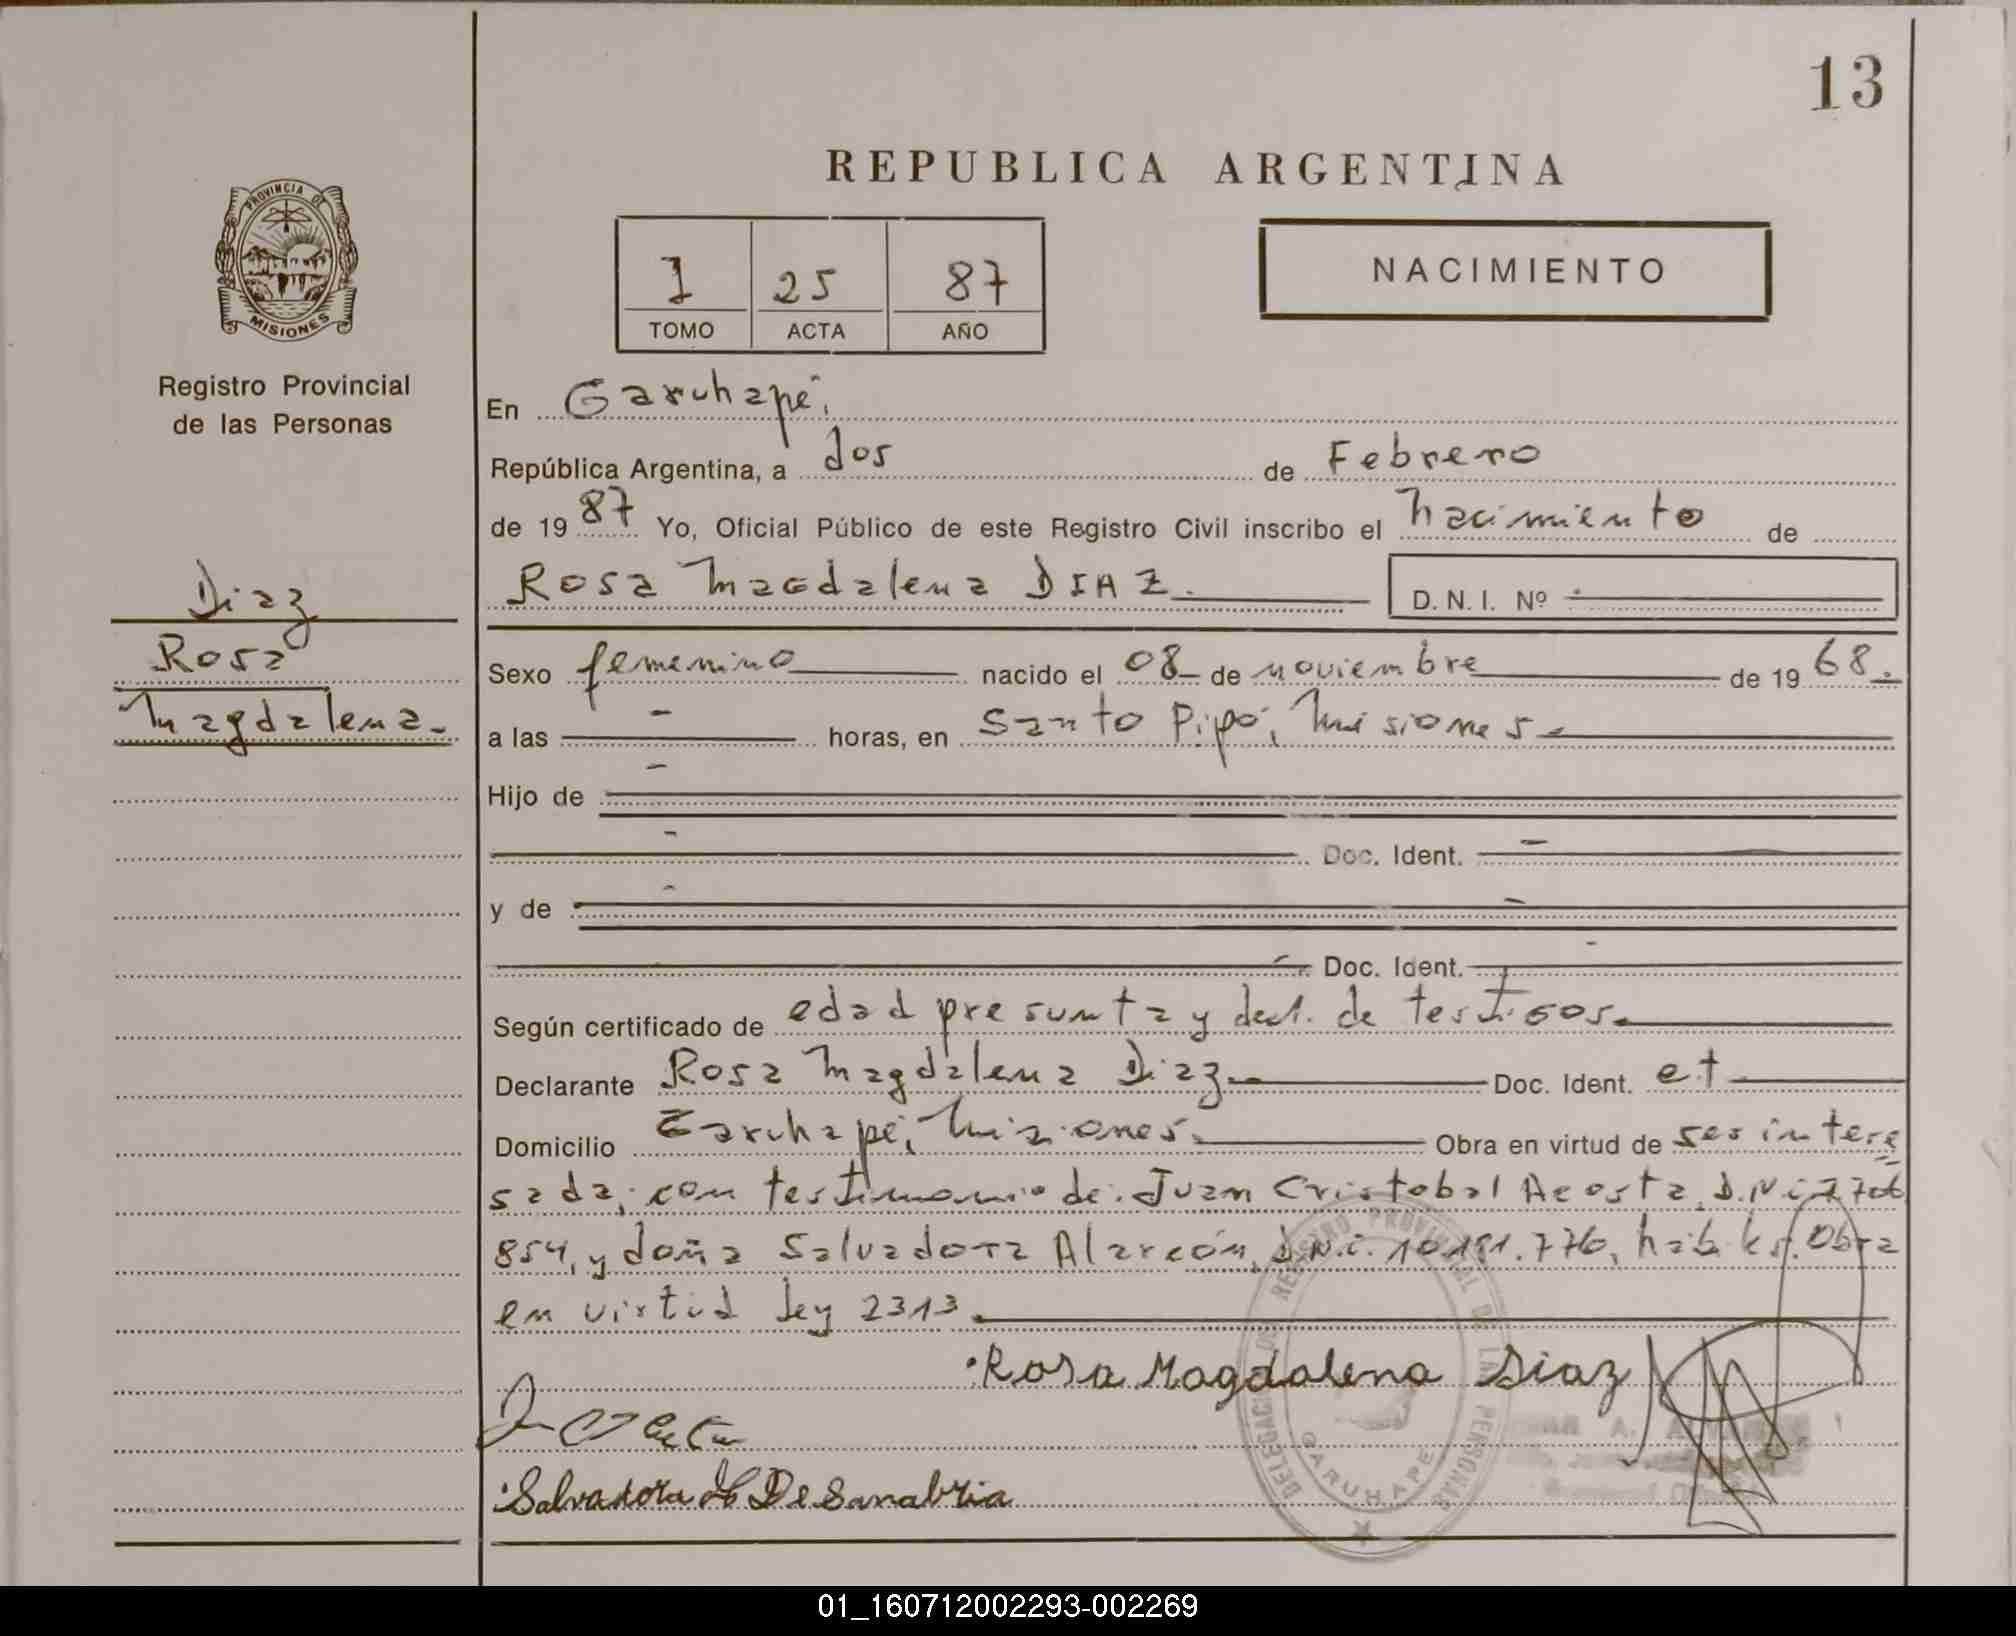 13
REPUBLICA ARGENTINA
PROVINCIA DE
MISIONES
Registro Provincial
de las Personas
I 25 87
TOMO ACTA AÑO
NACIMIENTO
En Garuhapé,
República Argentina, a dos de Febrero
de 19 87 Yo, Oficial Público de este Registro Civil inscribo el nacimiento de
Rosa Magdalena DIAZ. D.N.I. Nº
Diaz
Rosa
Magdalena.
Sexo femenino nacido el 08 de noviembre de 19 68.
a las horas, en Santo Pipó, Misiones.
Hijo de
Doc. Ident.
y de
Doc. Ident.
Según certificado de edad presunta y decl. de testigos.
Declarante Rosa Magdalena Diaz Doc. Ident. et
Domicilio Garuhapé, Misiones. Obra en virtud de ser intere
sada, con testimonio de: Juan Cristobal Acosta, D.N.i.
854, y doña Salvadora Alarcón, D.N.i. 10.191.776, háb. Obra
en virtud ley 2313.
Rosa Magdalena Diaz
Salvadora De Sanabria
DELEGACION DEL REGISTRO PROVINCIAL DE LAS PERSONAS
GARUHAPE
01_160712002293-002269